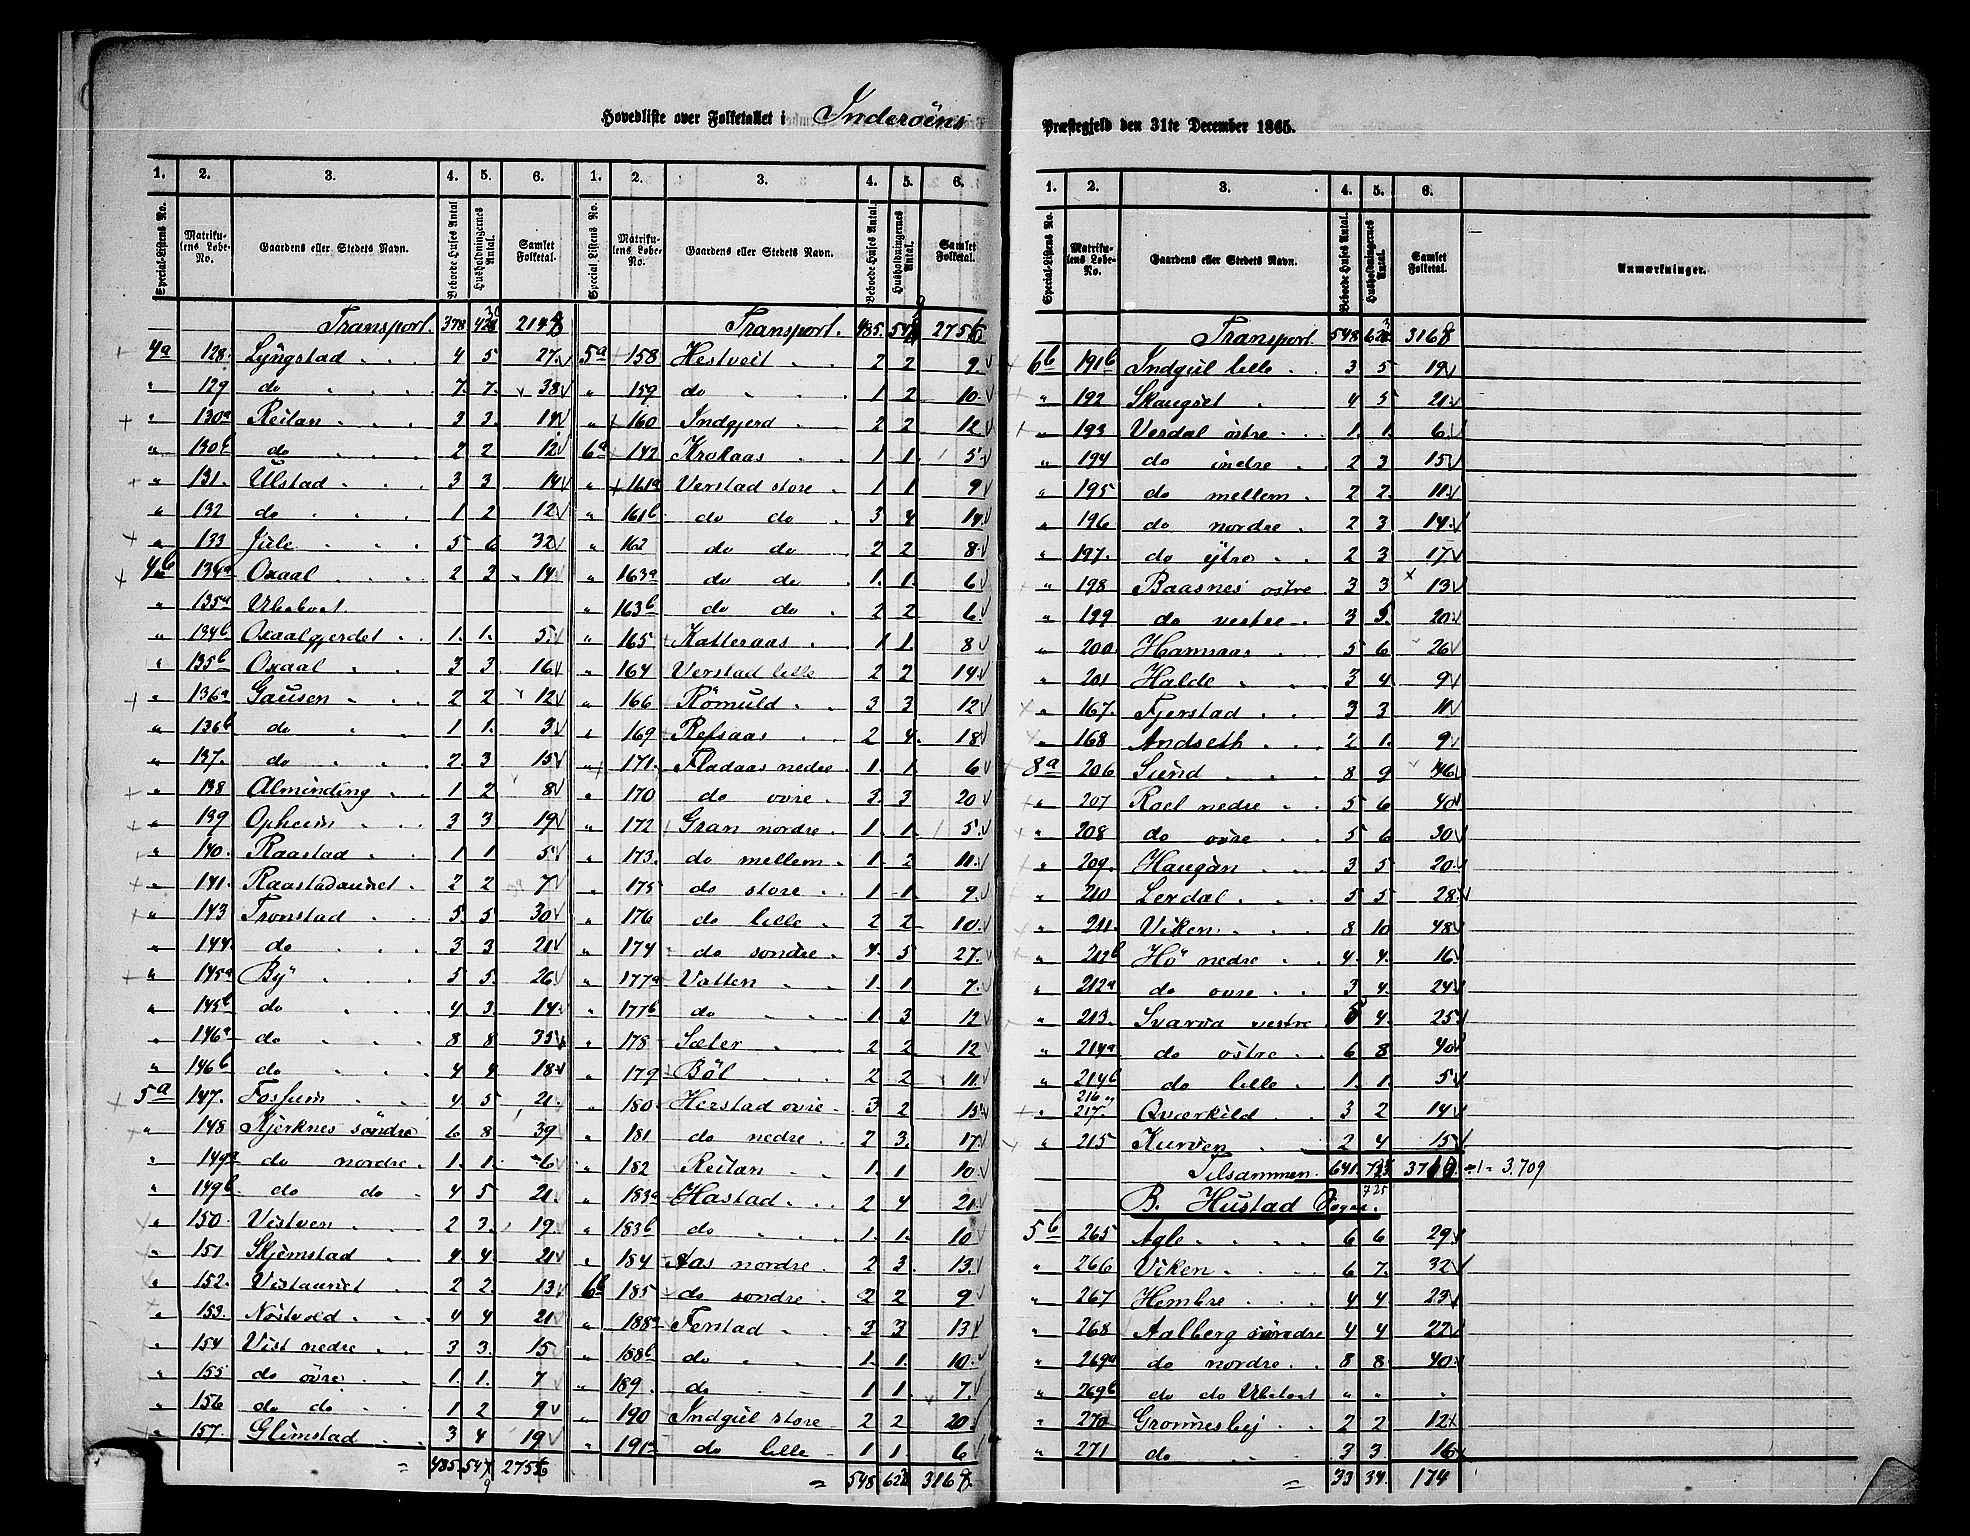 Hovedliste over Folketallet i Inderöens
Præstegjeld den 31te December 1865.
1. 2. 3. 4. 5. 6. 1. 2. 3. 4. 5. 6.
Special-Listens No. Matrikulens Løbe-No. Gaardens eller Stedets Navn. Beboede Huses Antal Husholdningernes Antal. Samlet Folketal.
Transport. 378 2148
4a 128. Lyngstad 4 5 27
" 129 do 7. 7. 38
" 130a Reitan 3 3. 14
" 130b do 2 2 12
" 131. Ulstad 3 3 14
" 132 do 1 2 12
" 133 Jule 5 6 32
4b 134a Oxaal 2 3 14
" 135a Ubeboet
" 134b Oxaalgjerdet 1. 1. 5
" 135b Oxaal 3 3 16
" 136a Gausen 2 2 12
" 136b do 1 1. 3
" 137. do 2. 3 15
" 138 Alminding 1 2 8
" 139 Opheim 3 3. 19
" 140. Raastad 1 1 5
" 141. Raastadaunet 2 2 7
" 143 Tronstad 5 5 30
" 144. do 3 3 21
" 145a By 5 5. 26
" 145b do 4 3. 14
" 146a do 8 8 35
" 146b do 4 4 18
5a 147. Fosheim 4 5 21.
" 148 Kjerknes söndre 6 8 39
" 149a do nordre 1. 1. 6
" 149b do do 4 5 21.
" 150. Vistven 2 3. 19.
" 151 Skjemstad 4 4. 21
" 152. Vistaunet 2 2. 13
" 153. Nöstvold 4 4 21
" 154 Vist nedre 3 3. 15
" 155 do övre 1. 1. 7
" 156 do do 1 2 9
" 157. Glimstad 3 4 19
= 485. 547 2756
Transport. 485. 2756
5a 158 Hestveit 2 2 9
" 159 do 1 2 10
" 160 Indgjerd 2 2 12
6a 142 Krokaas 1 1. 5
" 161a Verstad store 1 1 9
" 161b do do 3 4 14
" 162 do do 2 2 8
" 163a do do 1. 1. 6
" 163b do do 2 2 6
" 165 Katteraas 1 1. 8
" 164 Verstad lille 2 2 14
" 166 Römuld 3 3 12
" 169 Refsaas 2 4. 18
" 171. Fladaas nedre 1. 1. 6
" 170 do ovre 3. 3 20
" 172 Gran nordre 1. 1. 5
" 173. do mellem 1. 2 11
" 175 do store 1 1. 9
" 176 do lille 2 2 10
" 174 do sondre 4. 5 27
" 177a Vatten 1. 1. 7
" 177b do 1. 3 12
" 178 Sæter 2 2 12
" 179 Böl 2 2 11
" 180 Herstad ovre 3 2 13
" 181 do nedre 2 3. 17
" 182 Reitan 1. 1 10
" 183a Hastad 2 4 21
" 183b do 1. 1. 10
" 184 Aas nordre 2 3. 13
6b 185 do sondre 2 2 9
" 188a Ferstad 3 3 13
" 188b do 1. 1. 10
" 189. do 1 1. 7
" 190 Indgul store 2 2 20
" 191a do lille 1 1 6
= 548 3168
1. 2. 3. 4. 5. 6.
Special-Listens No. Matrikulens Løbe-No. Gaardens eller Stedets Navn. Beboede Huses Antal. Husholdningernes Antal. Samlet Folketal. Anmærkninger.
Transport 548 3168
6b 191b Indgul lille 3 5 19
" 192 Skaugset 4 5 21
" 193 Verdal östre 1. 1. 6
" 194 do indre 2 3 15
" 195 do mellem 2 2. 11
" 196 do nordre 2 3 14
" 197. do ytre 2 3 17
" 198 Baasnes ostre 3 3 13
" 199 do vestre 3 5. 20
" 200 Hamnaas 5 6 26
" 201 Halde 3 4. 9
" 167. Fjerstad 3 3 11
" 168 Andseth 2 1. 9
8a 206 Sund 8 9 46
" 207 Roel nedre 5 6 40
" 208 do ovre 5 6 30
" 209. Haugan 3 5 20
" 210 Lerdal 5 5 28
" 211. Viken 8 10 48
" 212b Hö nedre 4. 4. 16
" 212a do ovre 3 4. 24
" 213. Svarva vestre 5 4. 25
" 214a do ostre 6 8 40
" 214b do lille 1. 1. 5
" 216 217. Qværkild 3 2 14
" 215 Kurven 2 4 15
Tilsammen 641. 3710 -1 = 3,709
725
B. Hustad Sogn.
5b 265 Agle 6 6 29
" 266 Viken 6 7. 32
" 267 Hembre 4 4. 23
" 268 Aalberg söndre 4 4 22
" 269a do nordre 8 8. 40
" 269b do do Ubeboet " " "
" 270 Gronneslej 2 2 12
" 271 do 3 3. 16
= 33 34. 174